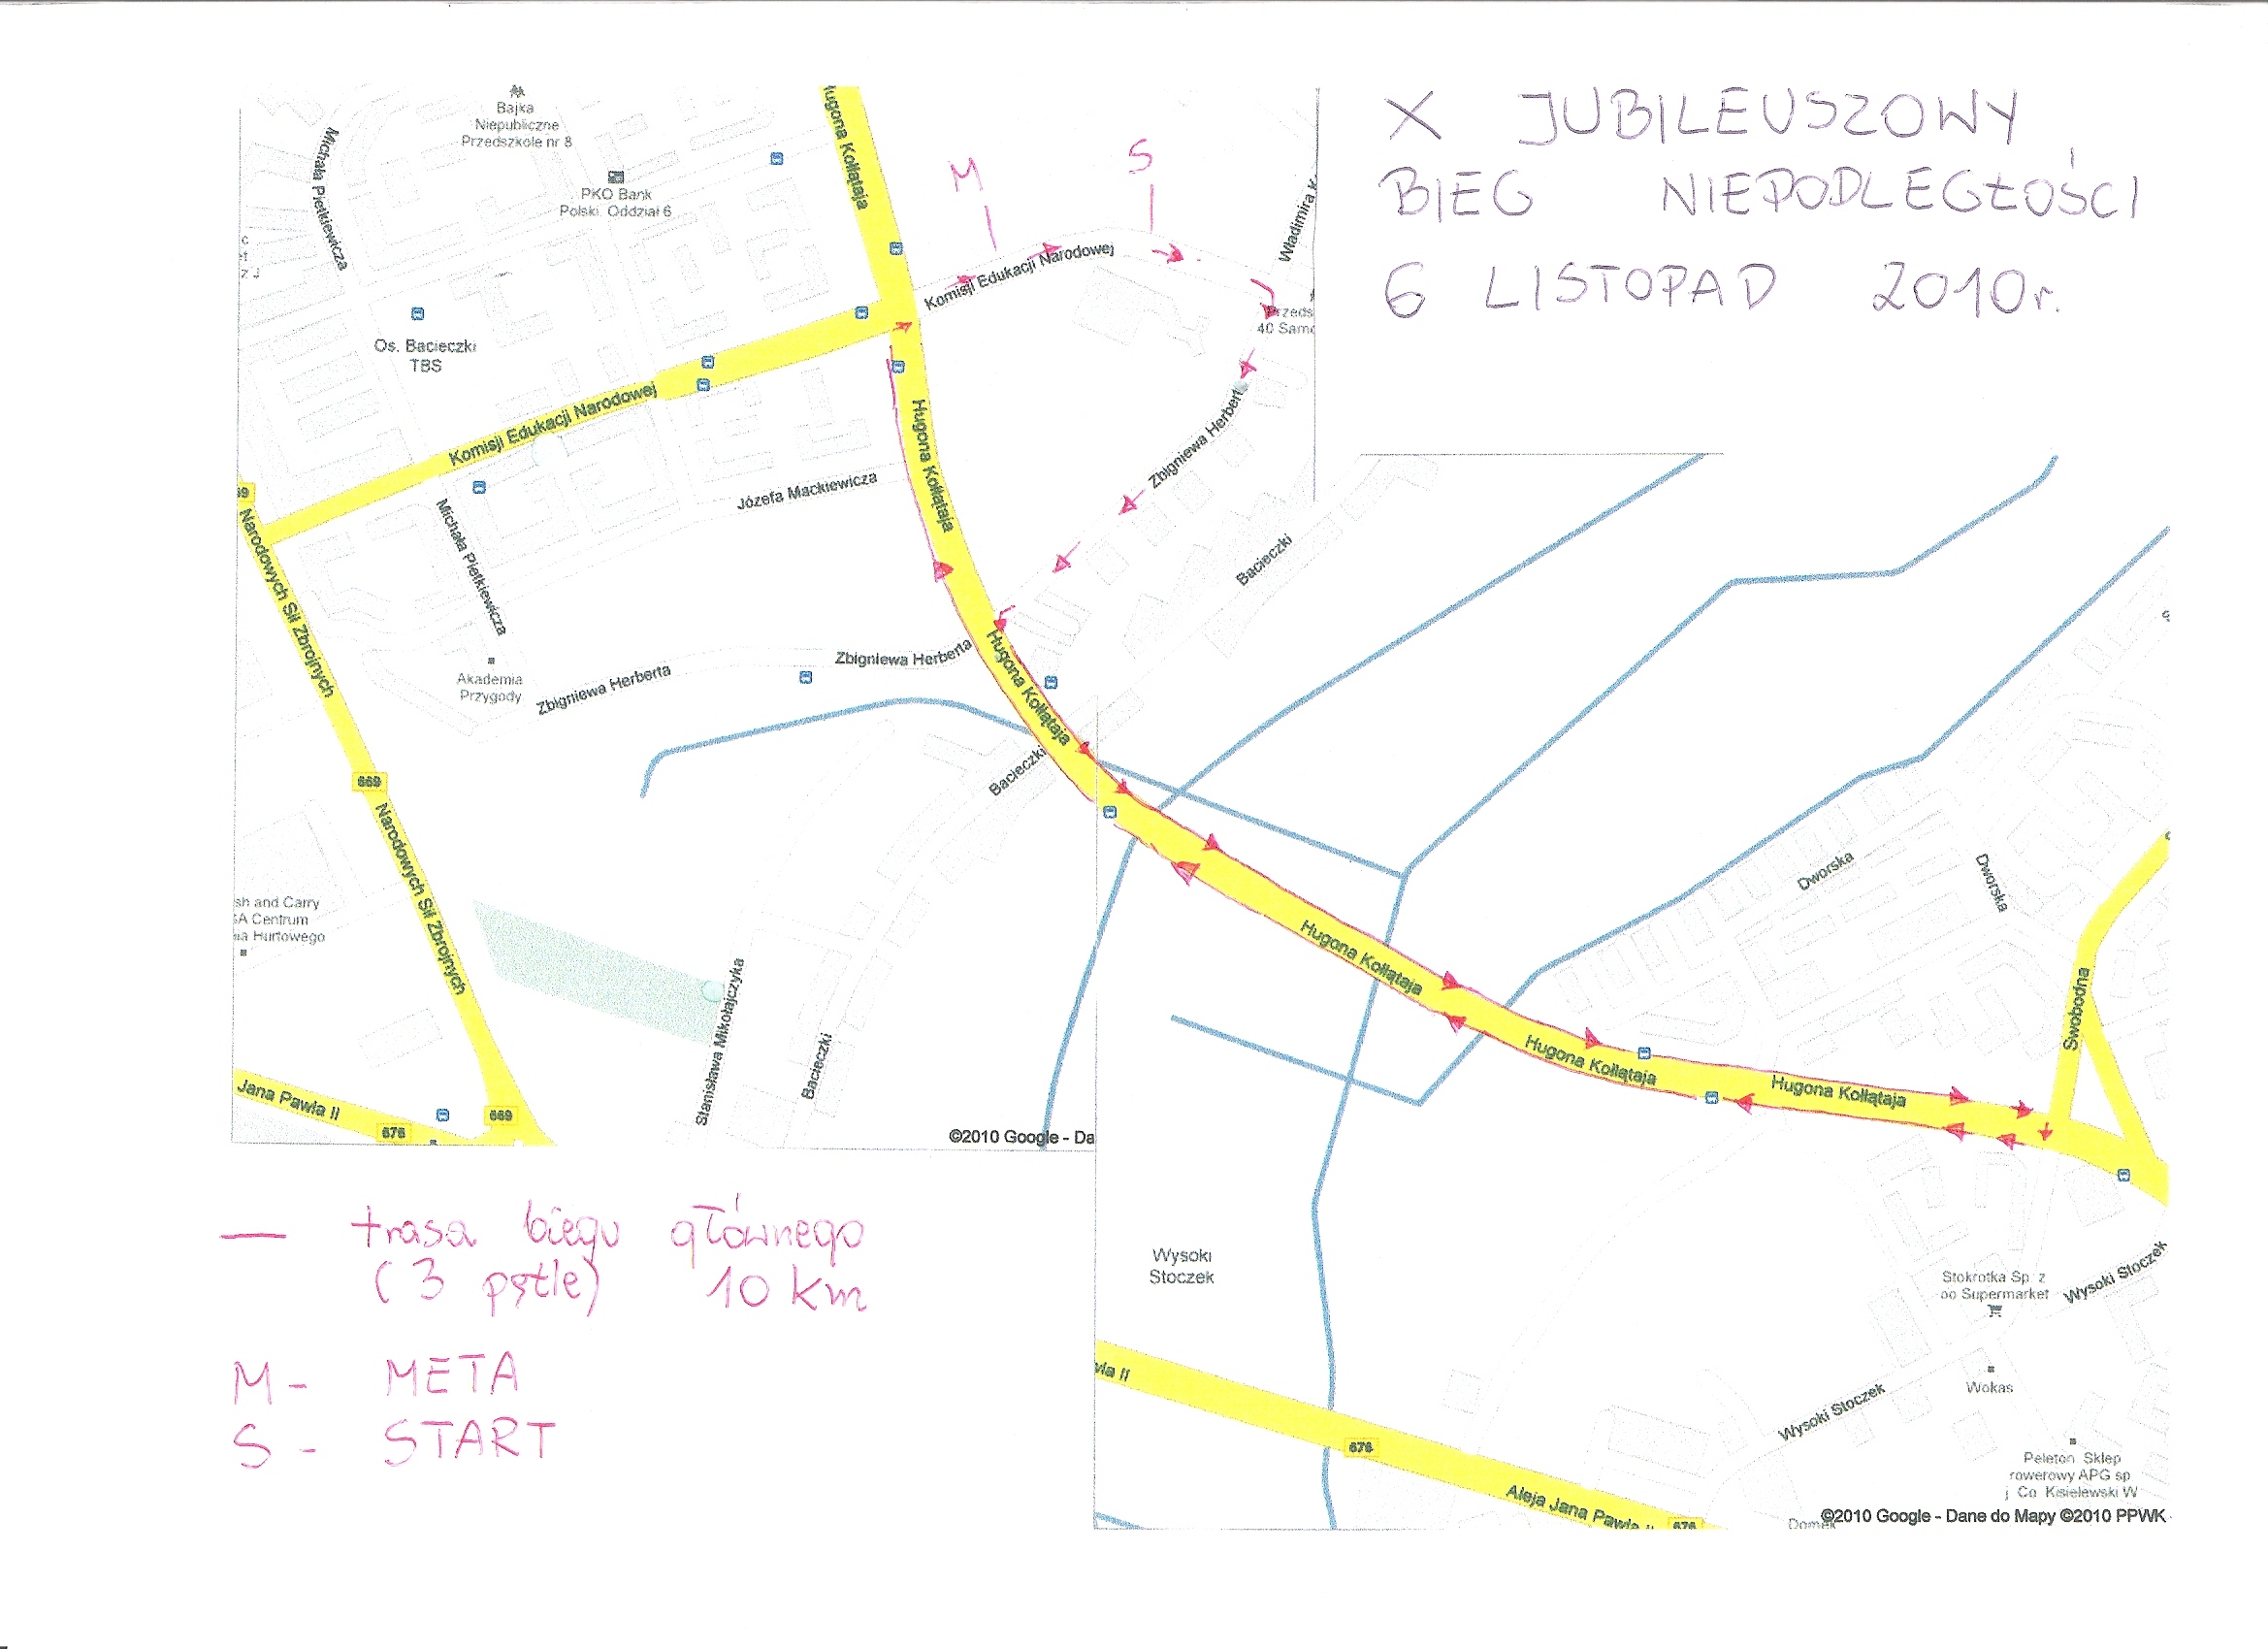 X JUBILEUSZOWY
BIEG NIEPODLEGŁOŚCI
6 LISTOPAD 2010r.
Bajka
Niepubliczne
Przedszkole nr 8
PKO Bank
Polski. Oddział 6
Michała Pietkiewicza
ugona Kołłątaja
M
S
Władimira K
Komisji Edukacji Narodowej
40 Samo
Os. Bacieczki
TBS
Komisji Edukacji Narodowej
Hugona Kołłątaja
Zbigniewa Herbert
Józefa Mackiewicza
Michała Pietkiewicza
Bacieczki
69
Narodowych Sił Zbrojnych
Akademia
Przygody
Zbigniewa Herberta
Zbigniewa Herberta
Hugona Kołłątaja
Bacieczki
669
Narodowych Sił Zbrojnych
sh and Carry
SA Centrum
ia Hurtowego
Stanisława Mikołajczyka
Bacieczki
Jana Pawła II
669
676
©2010 Google - Da
Dworska
Dworska
Swobodna
Hugona Kołłątaja
Hugona Kołłątaja
Hugona Kołłątaja
Wysoki
Stoczek
Stokrotka Sp. z
oo Supermarket
Wysoki Stoczek
Wokas
Wysoki Stoczek
wła II
676
Aleja Jana Pawła II
676
Peleton. Sklep
rowerowy APG sp
j. Co. Kisielewski W
Domek
©2010 Google - Dane do Mapy ©2010 PPWK
— trasa biegu głównego
(3 pętle) 10 km
M - META
S - START